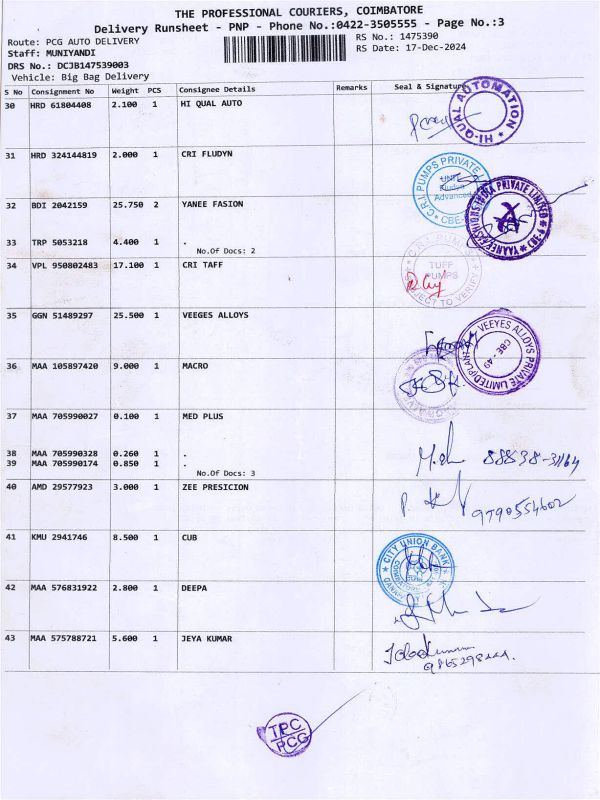 THE PROFESSIONAL COURIERS, COIMBATORE
Delivery Runsheet - PNP - Phone No.:0422-3505555 - Page No.:3
Route: PCG AUTO DELIVERY
RS No.: 1475390
Staff: MUNIYANDI
RS Date: 17-Dec-2024
DRS No.: DCJB147539003
Vehicle: Big Bag Delivery
S No Consignment No Weight PCS Consignee Details Remarks Seal & Signature
30 HRD 61804408 2.100 1 HI QUAL AUTO
HI-QUAL AUTOMATION
31 HRD 324144819 2.000 1 CRI FLUDYN
C.R.I. PUMPS PRIVATE
UNIT
Fludyn
Advanced
CBE
32 BDI 2042159 25.750 2 YANEE FASION
PRIVATE LIMITED
33 TRP 5053218 4.400 1 .
No.Of Docs: 2
34 VPL 950802483 17.100 1 CRI TAFF
C.R.I. PUMPS
TUFF
PUMPS
SUBJECT TO VERIFY
35 GGN 51489297 25.500 1 VEEGES ALLOYS
VEEYES ALLOYS PRIVATE LIMITED (PLANT
CBE - 49
36 MAA 105897420 9.000 1 MACRO
37 MAA 705990027 0.100 1 MED PLUS
38 MAA 705990328 0.260 1 .
39 MAA 705990174 0.850 1 .
No.Of Docs: 3
88838-31164
40 AMD 29577923 3.000 1 ZEE PRESICION
9790554602
41 KMU 2941746 8.500 1 CUB
CITY UNION BANK
42 MAA 576831922 2.800 1 DEEPA
43 MAA 575788721 5.600 1 JEYA KUMAR
TPC
PCG